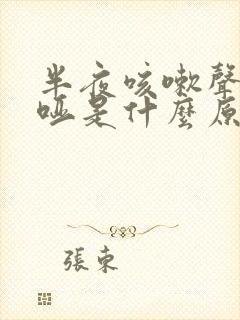 半夜咳嗽聲
啞是什麼原
張東